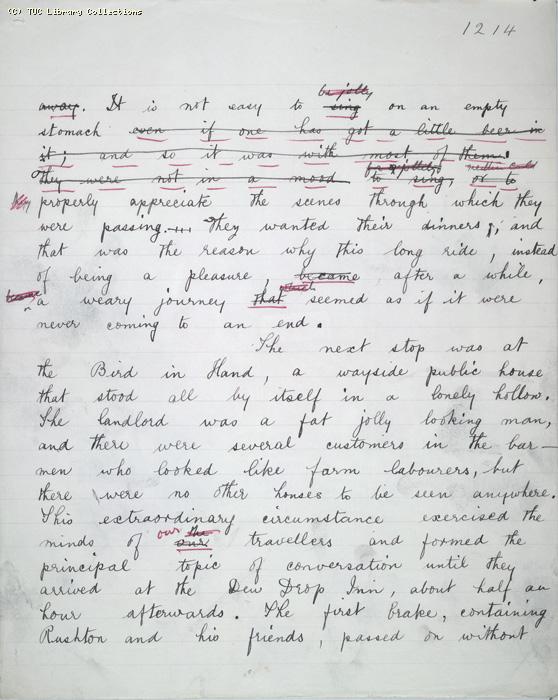 (C) TUC Library Collections
1214
be jolly
away. It is not easy to sing on an empty
stomach even if one has got a little beer in
it; and so it was with most of them.
They were not in a mood to sing, or to
properly appreciate the scenes through which they
were passing.... They wanted their dinners; and
that was the reason why this long ride, instead
of being a pleasure, became after a while,
became a weary journey that which seemed as if it were
never coming to an end.
The next stop was at
the Bird in Hand, a wayside public house
that stood all by itself in a lonely hollow.
The landlord was a fat jolly looking man,
and there were several customers in the bar—
men who looked like farm labourers, but
there were no other houses to be seen anywhere.
This extraordinary circumstance exercised the
minds of our the our travellers and formed the
principal topic of conversation until they
arrived at the Dew Drop Inn, about half an
hour afterwards. The first brake, containing
Rushton and his friends, passed on without